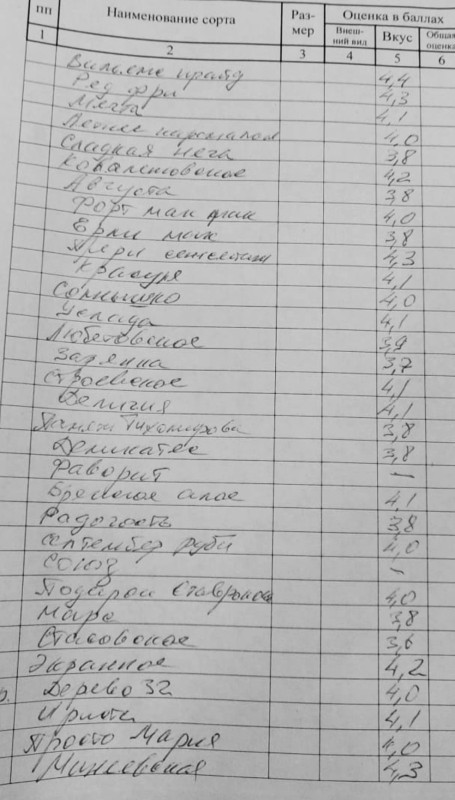 пп Наименование сорта Раз- Оценка в баллах
мер Внеш- Вкус Общая
ний вид оценка
1 2 3 4 5 6
Вильямс прайд 4,4
Ред фри 4,3
Мечта 4,1
Летнее 4,0
Сладкая нега 3,8
Ковалентовское 4,2
Августа 3,8
Форт 4,0
Ерли мак 3,8
4,3
Красуля 4,1
Солнышко 4,0
Услада 4,1
Любетовское 3,9
Зарянка 3,7
Строевское 4,1
4,1
Памяти Тихомирова 3,8
Деликатес 3,8
Фаворит –
Брянское алое 4,1
Радогость 3,8
Септембер руби 4,0
Союз –
Подарок 4,0
Маяк 3,8
3,6
Экранное 4,2
Дерево 32 4,0
4,1
Просто Мария 4,0
4,3